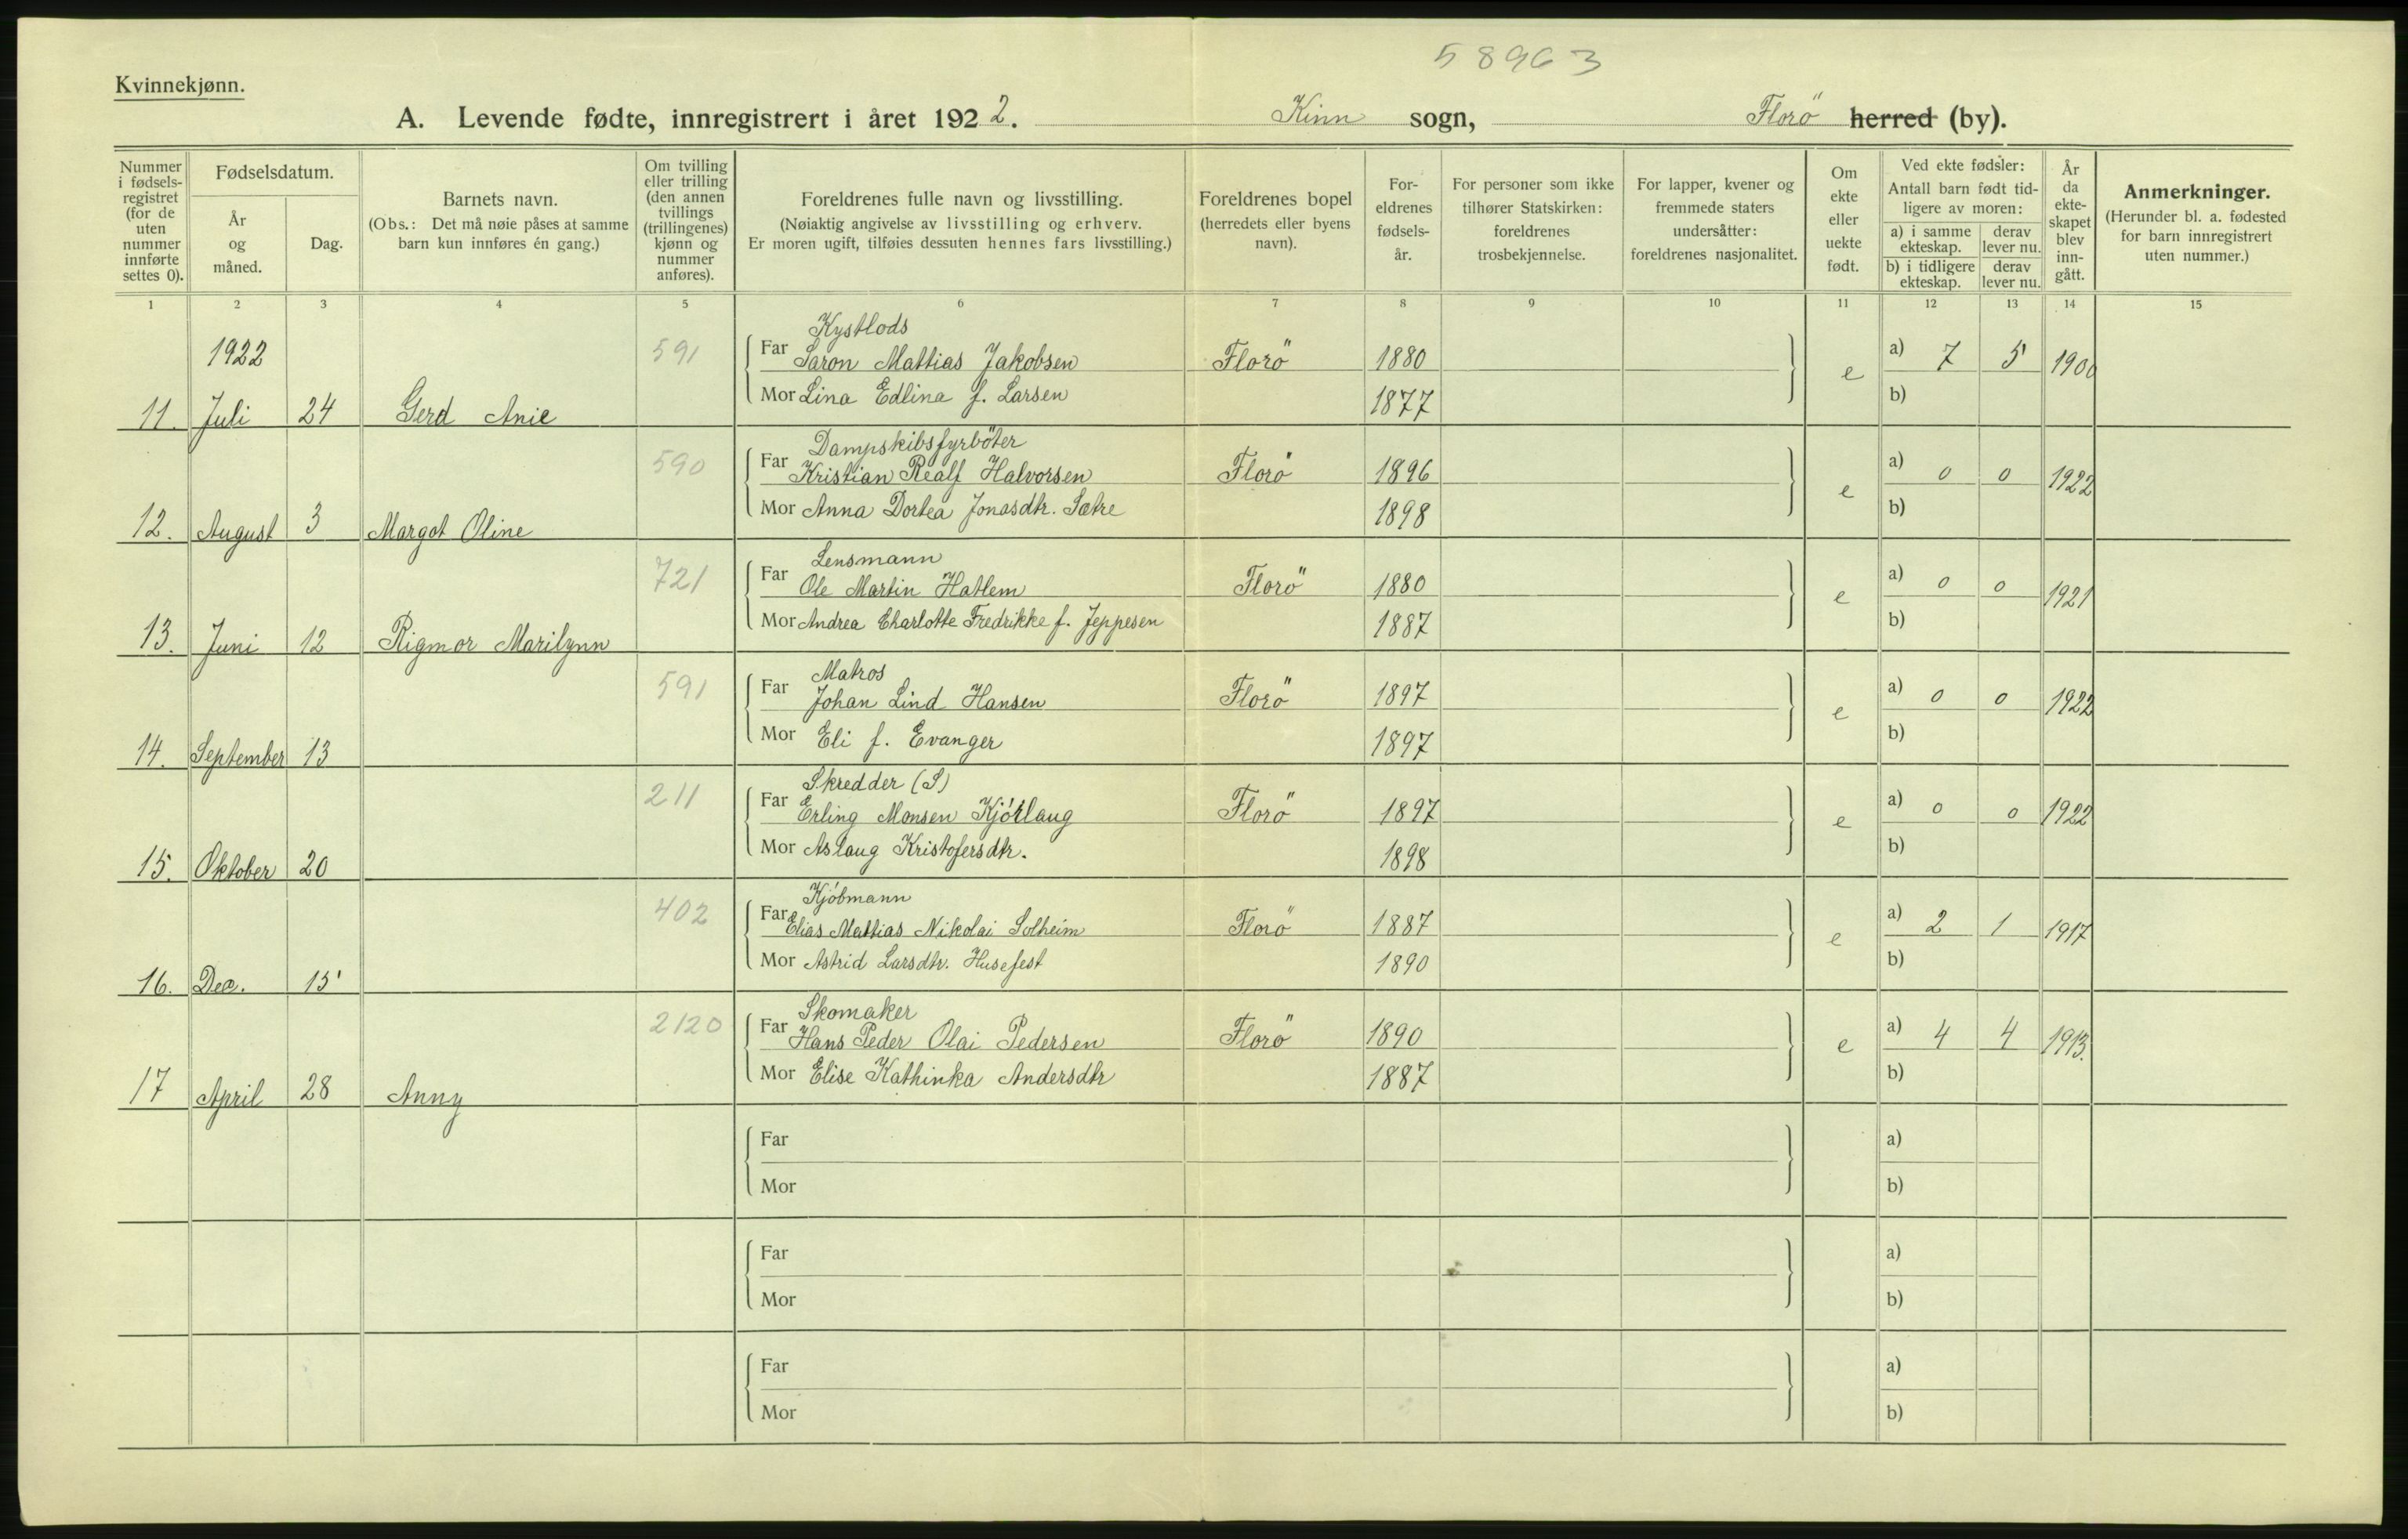 58963
Kvinnekjønn.
A. Levende fødte, innregistrert i året 1922. Kinn sogn, Florö herred (by).
Nummer i fødsels-registret (for de uten nummer innførte settes 0).
Fødselsdatum.
År og måned.
Dag.
Barnets navn.
(Obs.: Det må nøie påses at samme barn kun innføres én gang.)
Om tvilling eller trilling (den annen tvillings (trillingenes) kjønn og nummer anføres).
Foreldrenes fulle navn og livsstilling.
(Nøiaktig angivelse av livsstilling og erhverv.
Er moren ugift, tilføies dessuten hennes fars livsstilling.)
Foreldrenes bopel (herredets eller byens navn).
For-eldrenes fødsels-år.
For personer som ikke tilhører Statskirken: foreldrenes trosbekjennelse.
For lapper, kvener og fremmede staters undersåtter: foreldrenes nasjonalitet.
Om ekte eller uekte født.
Ved ekte fødsler:
Antall barn født tid-ligere av moren:
a) i samme ekteskap. derav lever nu.
b) i tidligere ekteskap. derav lever nu.
År da ekte-skapet blev inn-gått.
Anmerkninger.
(Herunder bl. a. fødested for barn innregistrert uten nummer.)
1 2 3 4 5 6 7 8 9 10 11 12 13 14 15
Kystlods
1922 591 Far Saron Mattias Jakobsen Florö 1880 e a) 7 5 1900
11. Juli 24 Gerd Anie Mor Lina Edlina f. Larsen 1877 b)
Dampskibsfyrböter
590 Far Kristian Realf Halvorsen Florö 1896 e a) 0 0 1922
12. August 3 Margot Oline Mor Anna Dortea Jonasdtr. Sætre 1898 b)
Lensmann
721 Far Ole Martin Hatlem Florö 1880 e a) 0 0 1921
13. Juni 12 Rigmor Marilynn Mor Andrea Charlotte Fredrikke f. Jeppesen 1887 b)
Matros
591 Far Johan Lind Hansen Florö 1897 e a) 0 0 1922
14. September 13 Mor Eli f. Evanger 1897 b)
Skredder (S)
211 Far Erling Monsen Kjörlaug Florö 1897 e a) 0 0 1922
15. Oktober 20 Mor Aslaug Kristofersdtr. 1898 b)
Kjöbmann
402 Far Elias Mattias Nikolai Solheim Florö 1887 e a) 2 1 1917
16. Dec. 15 Mor Astrid Larsdtr. Husefest 1890 b)
Skomaker
2120 Far Hans Peder Olai Pedersen Florö 1890 e a) 4 4 1913.
17 April 28 Anny Mor Elise Kathinka Andersdtr 1887 b)
Far a)
Mor b)
Far a)
Mor b)
Far a)
Mor b)